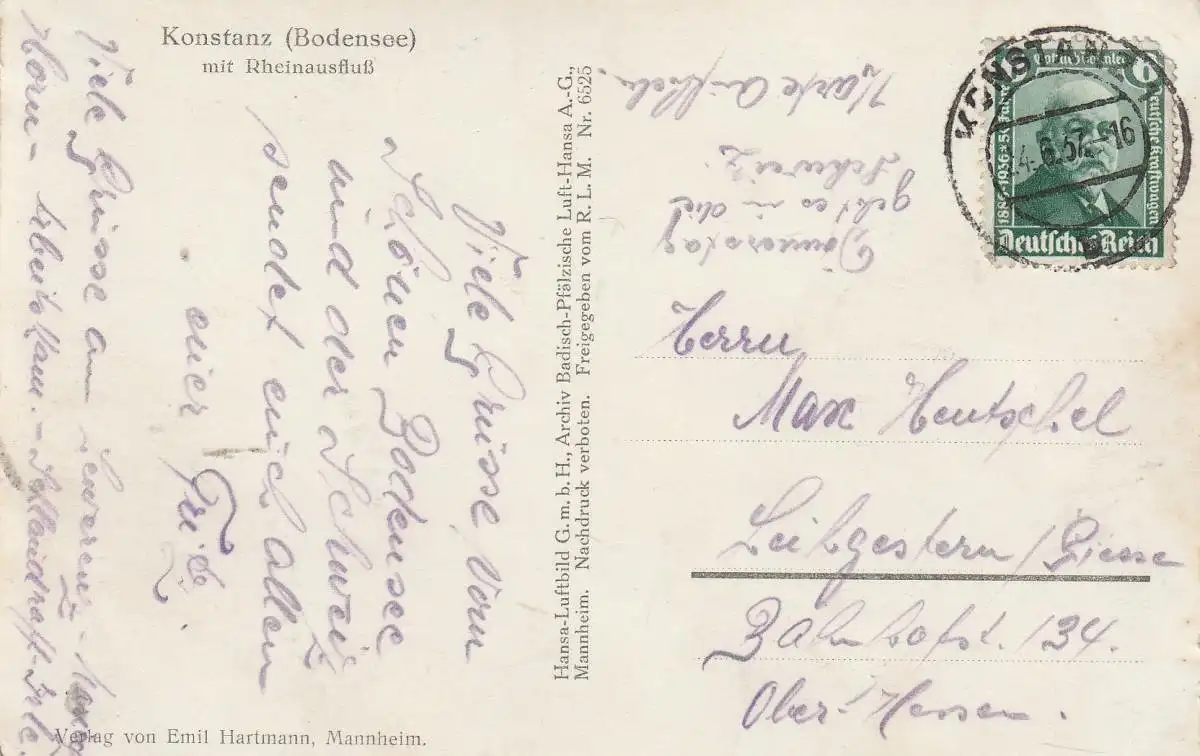 Konstanz (Bodensee)
mit Rheinausfluß
Viele Grüsse vom
schönen Bodensee
und der Schweiz
sendet euch allen
euer
Viele Grüsse an
Horn-
Verlag von Emil Hartmann, Mannheim.
Hansa-Luftbild G.m.b.H., Archiv Badisch-Pfälzische Luft-Hansa A.-G.,
Mannheim. Nachdruck verboten. Freigegeben vom R.L.M. Nr. 6525
Karte
Donnerstag
geht es in die
Schweiz.
KONSTANZ
6.37.-16
6
1936 * 50 Jahre
Deutsche Kraftwagen
Deutsches Reich
Herrn
Max Hentschel
Leihgestern/Giesse
Bahnhofst. 134.
Ober-Hessen.